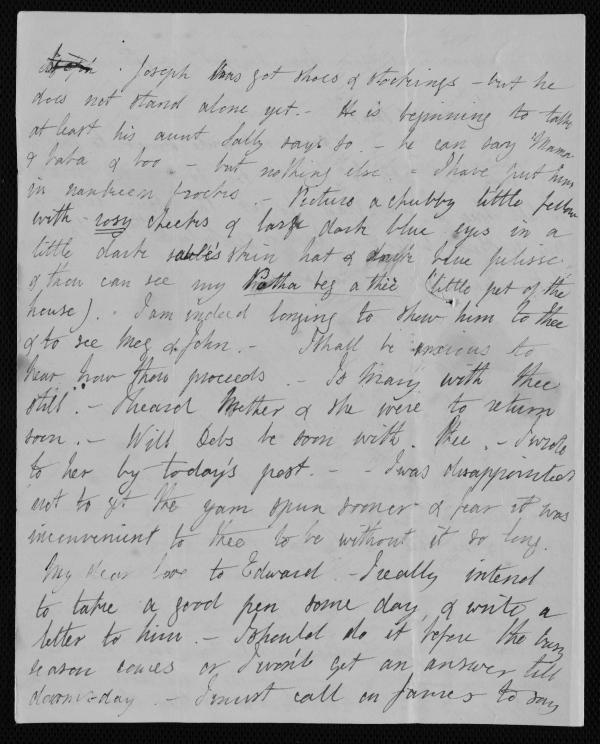 . Joseph has got shoes & stockings - but he
does not stand alone yet. - He is beginning to talk
at least his aunt Sally says so - he can say Mama
& baba & boo - but nothing else. - I have put him
in nankeen frocks. - Picture a chubby little fellow
with rosy cheeks & large dark blue eyes in a
little dark sable's skin hat & dark blue pilisse,
& thou can see my beg a thie (little pet of the
house). I am indeed longing to shew him to thee
& to see Meg & John. - I shall be anxious to
hear how thou proceeds. - Is Mary with thee
still. - I heard Mother & she were to return
soon. - Will Debs be soon with thee. - I wrote
to her by today's post. - - I was disappointed
not to get the yarn spun sooner & fear it was
inconvenient to thee to be without it so long.
My dear love to Edward - I really intend
to take a good pen some day, & write a
letter to him. - I should do it before the busy
season comes or I won't get an answer till
doomsday. - I must call on James to say